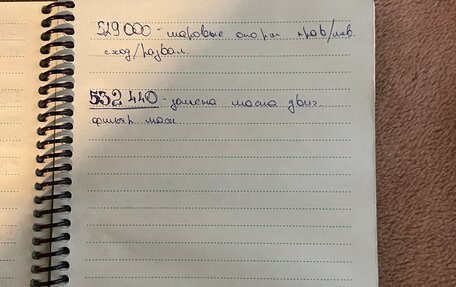 529 000 - шаровые опоры прав/лев.
сход/развал.
532 440 - замена масла двиг.
фильтр масл.